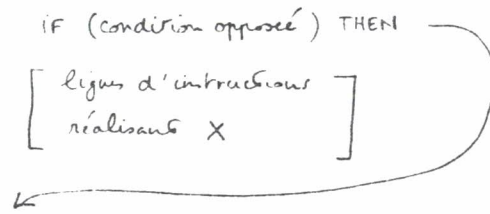 IF (condition opposée) THEN
lignes d'instructions
réalisant X